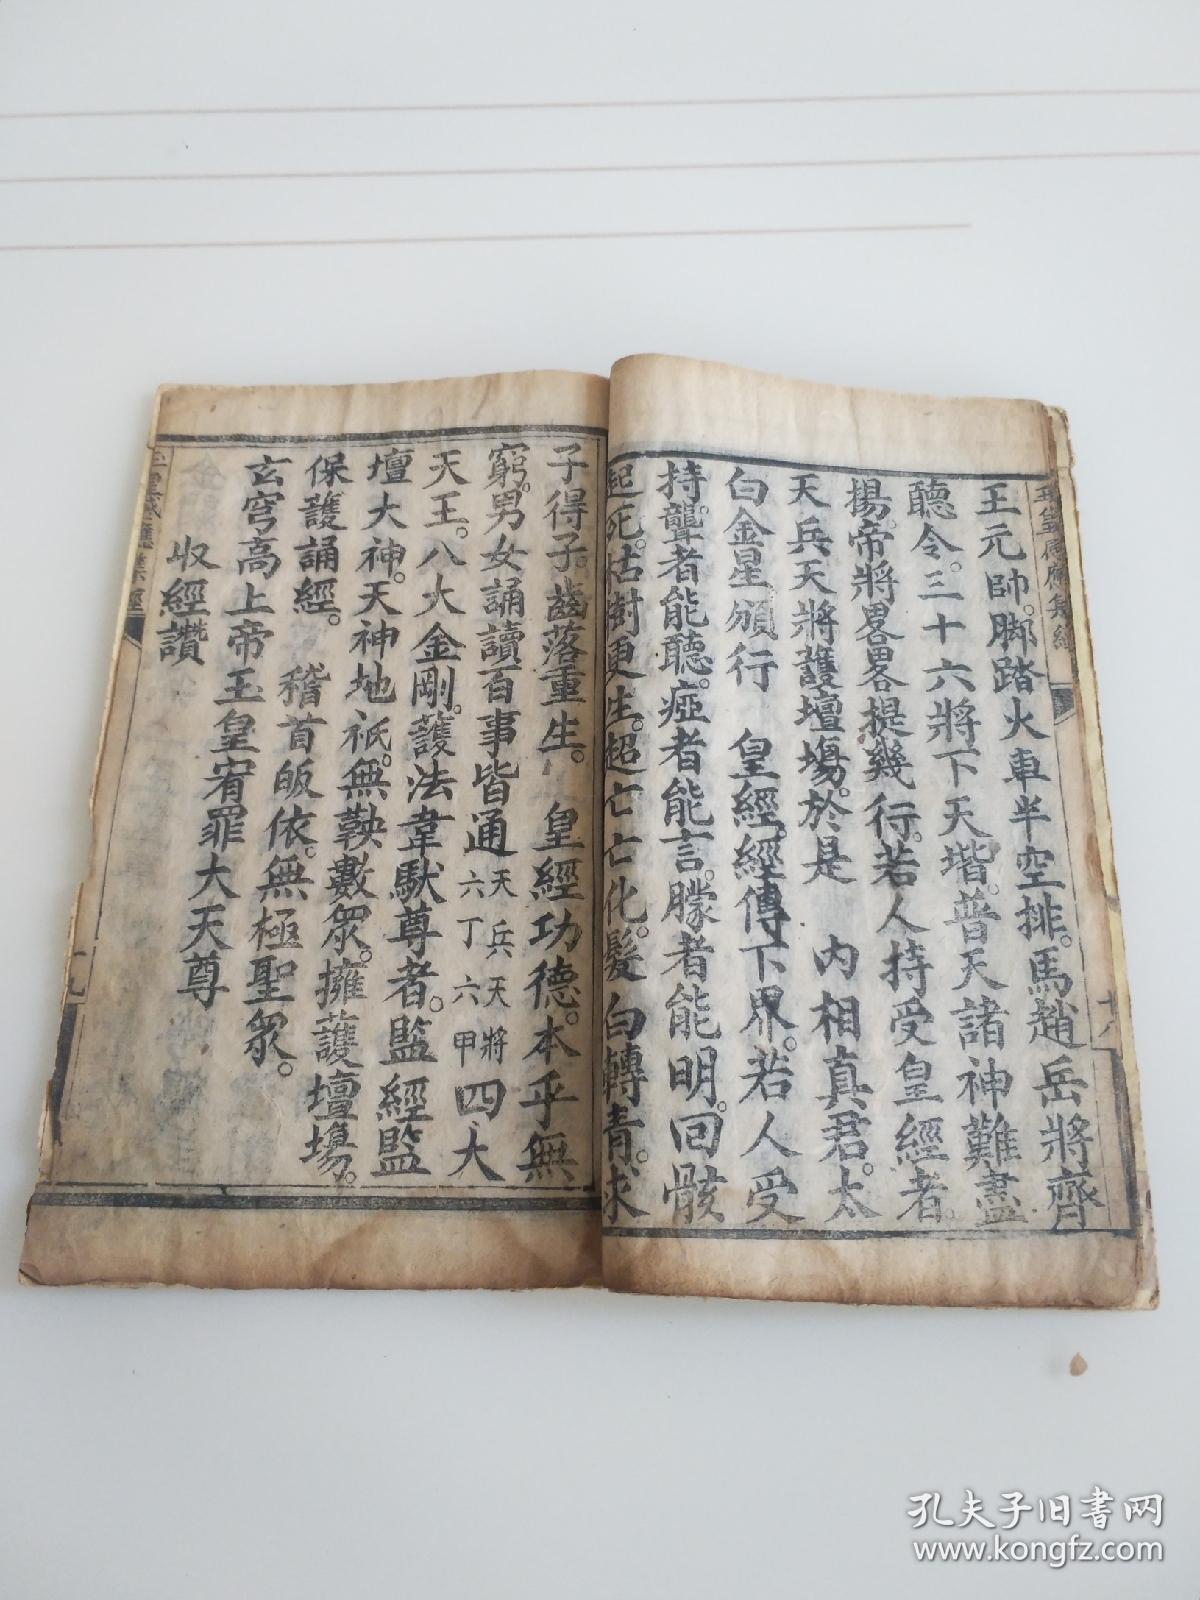 王元帥。脚踏火車半空排。馬趙岳將齊
聽令。三十六將下天堦。普天諸神難盡
揚。帝將畧畧提幾行。若人持受皇經者。
天兵天將護壇場。於是　內相真君。太
白金星。頒行　皇經。經傳下界。若人受
持。聾者能聽。瘂者能言。朦者能明。回骸
起死。枯樹更生。超亡亡化。髮白轉青。求
子得子。齒落重生。　皇經功德。本乎無
窮。男女誦讀。百事皆通 天兵天將 六丁六甲 四大
天王。八大金剛。護法韋馱尊者。監經監
壇大神。天神地祇。無鞅數眾。擁護壇場。
保護誦經。　稽首皈依。無極聖眾。
玄穹高上帝玉皇宥罪大天尊
收經讚
皇感應集經
十九
孔夫子旧书网
www.kongfz.com